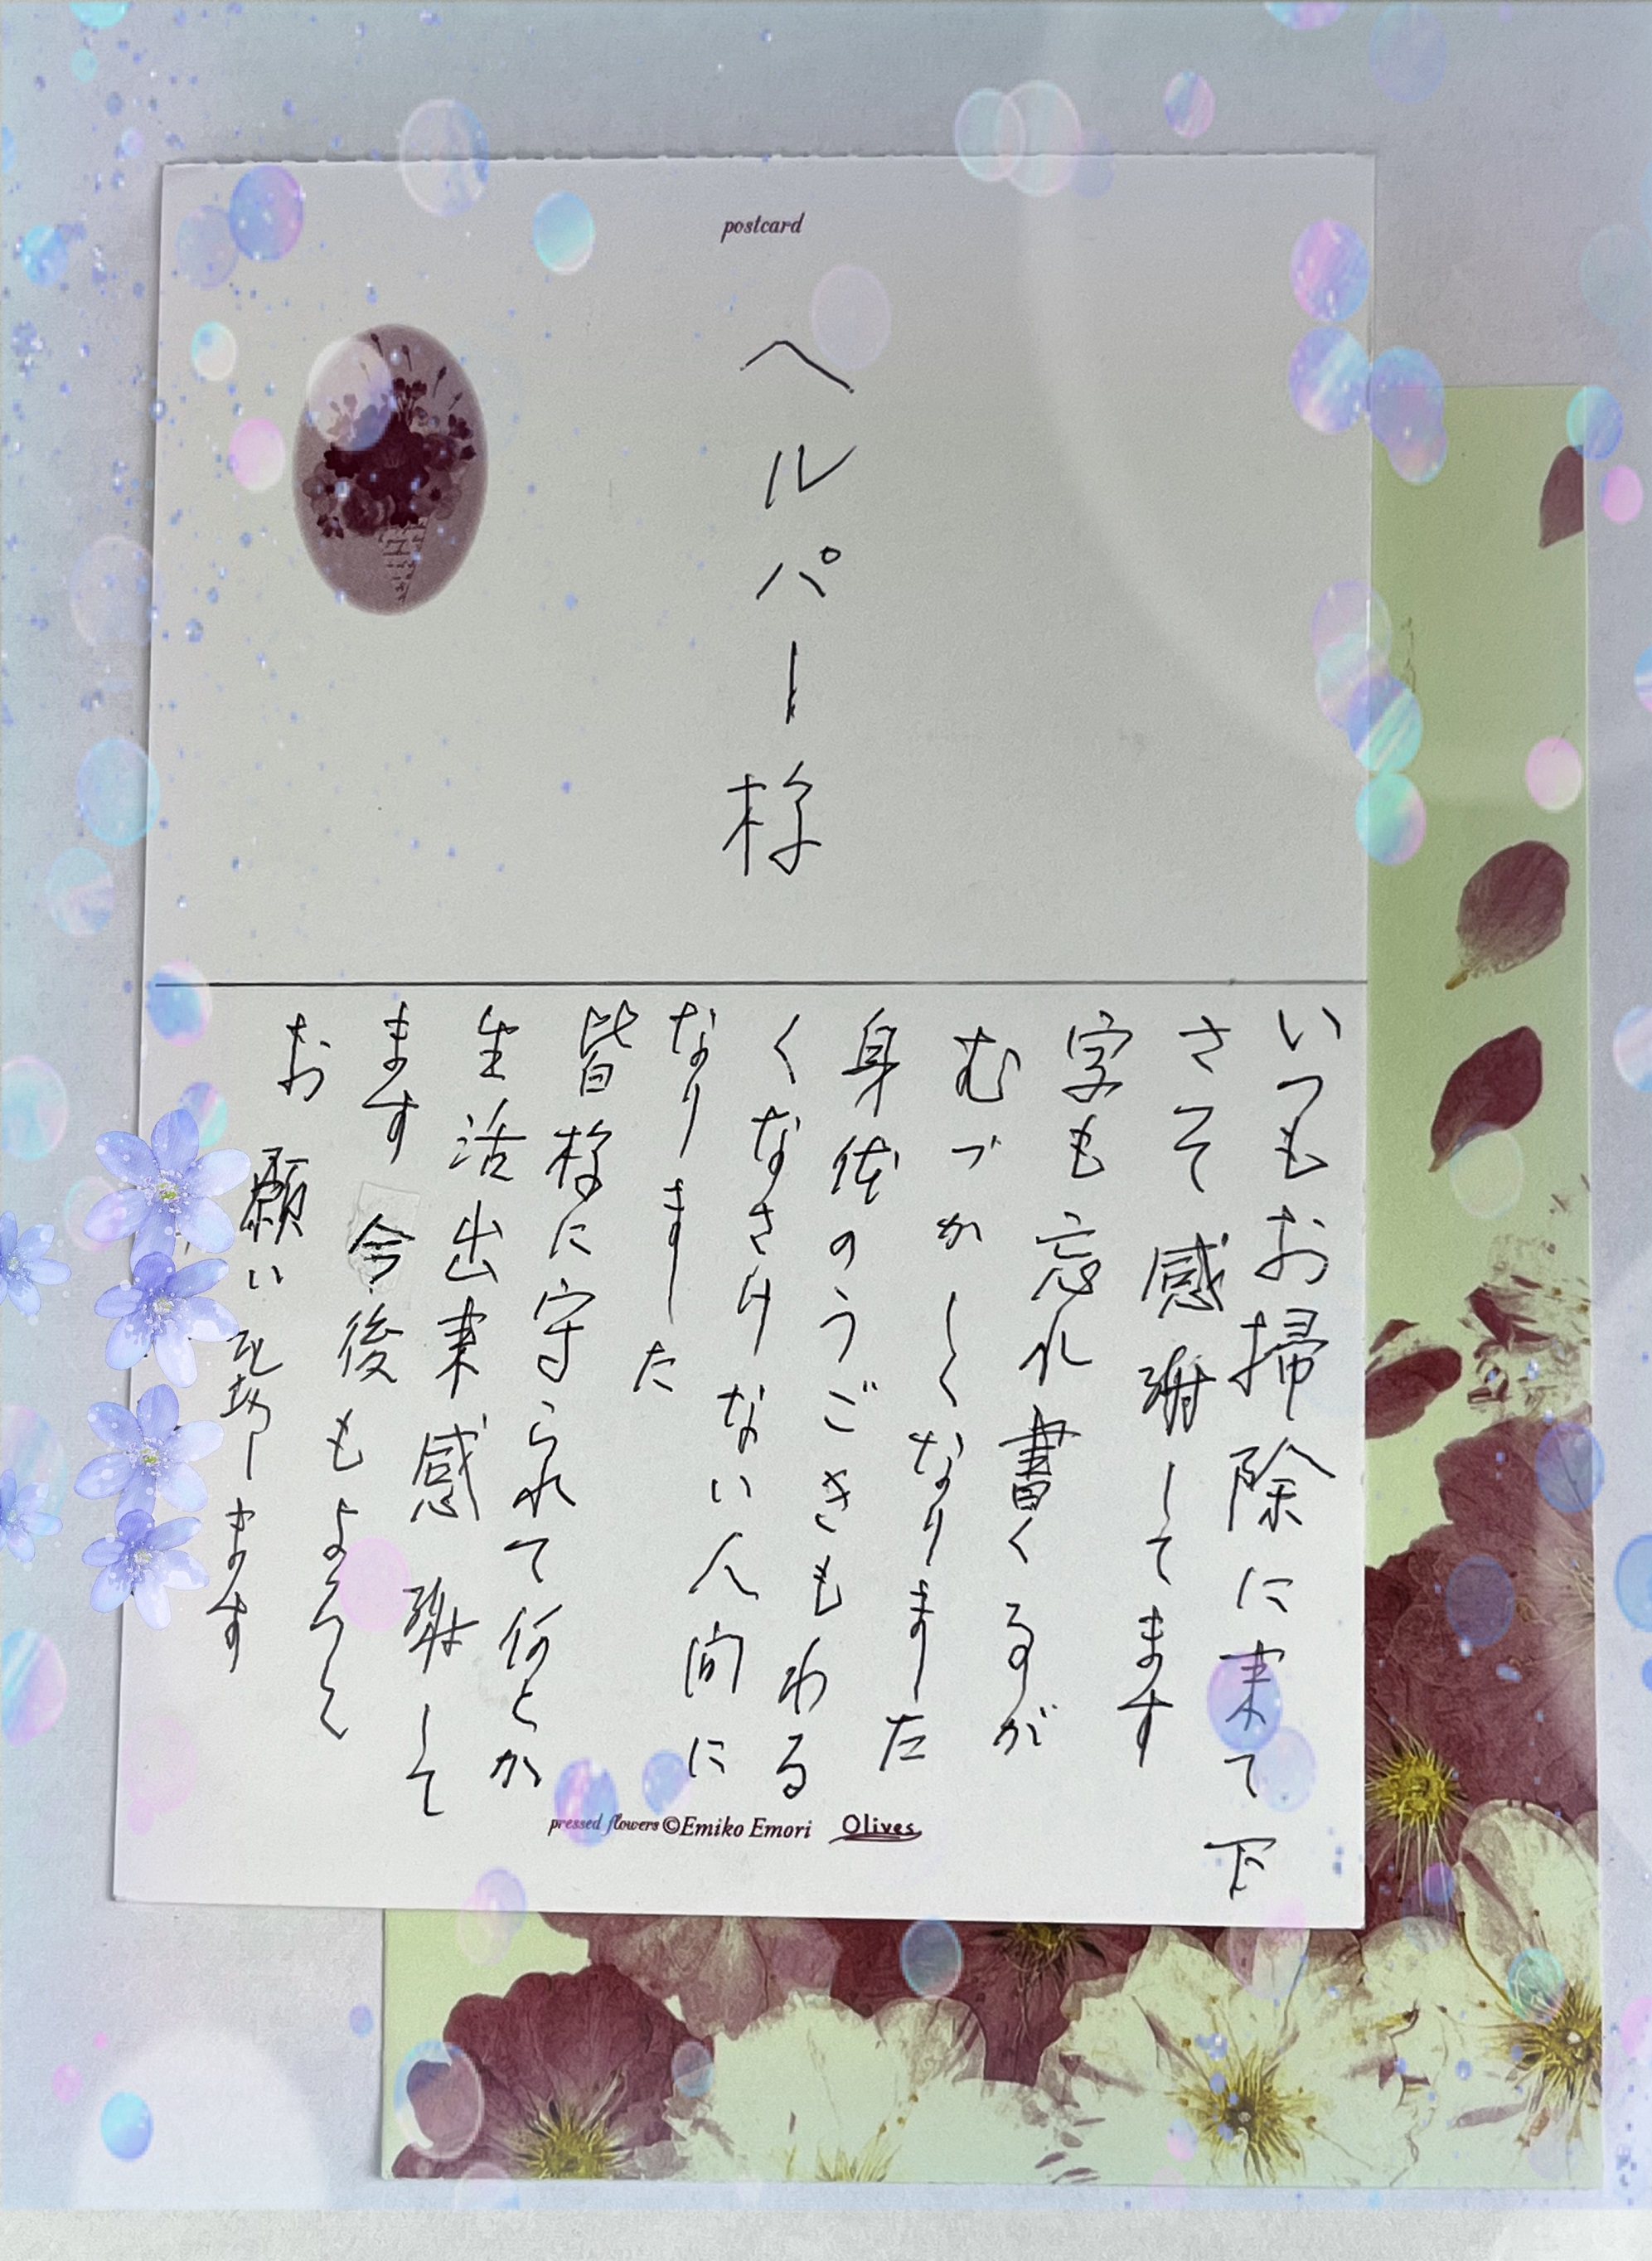 postcard
ヘルパー様
いつもお掃除に来て下
さそ感謝してます
字も忘れ書くるが
むづかしくなりました
身体のうごきもわる
くなさけない人間に
なりました
皆様に守られて何とか
生活出来感謝して
ます今後もよろしく
お願い致します
pressed flowers ©Emiko Emori Olives